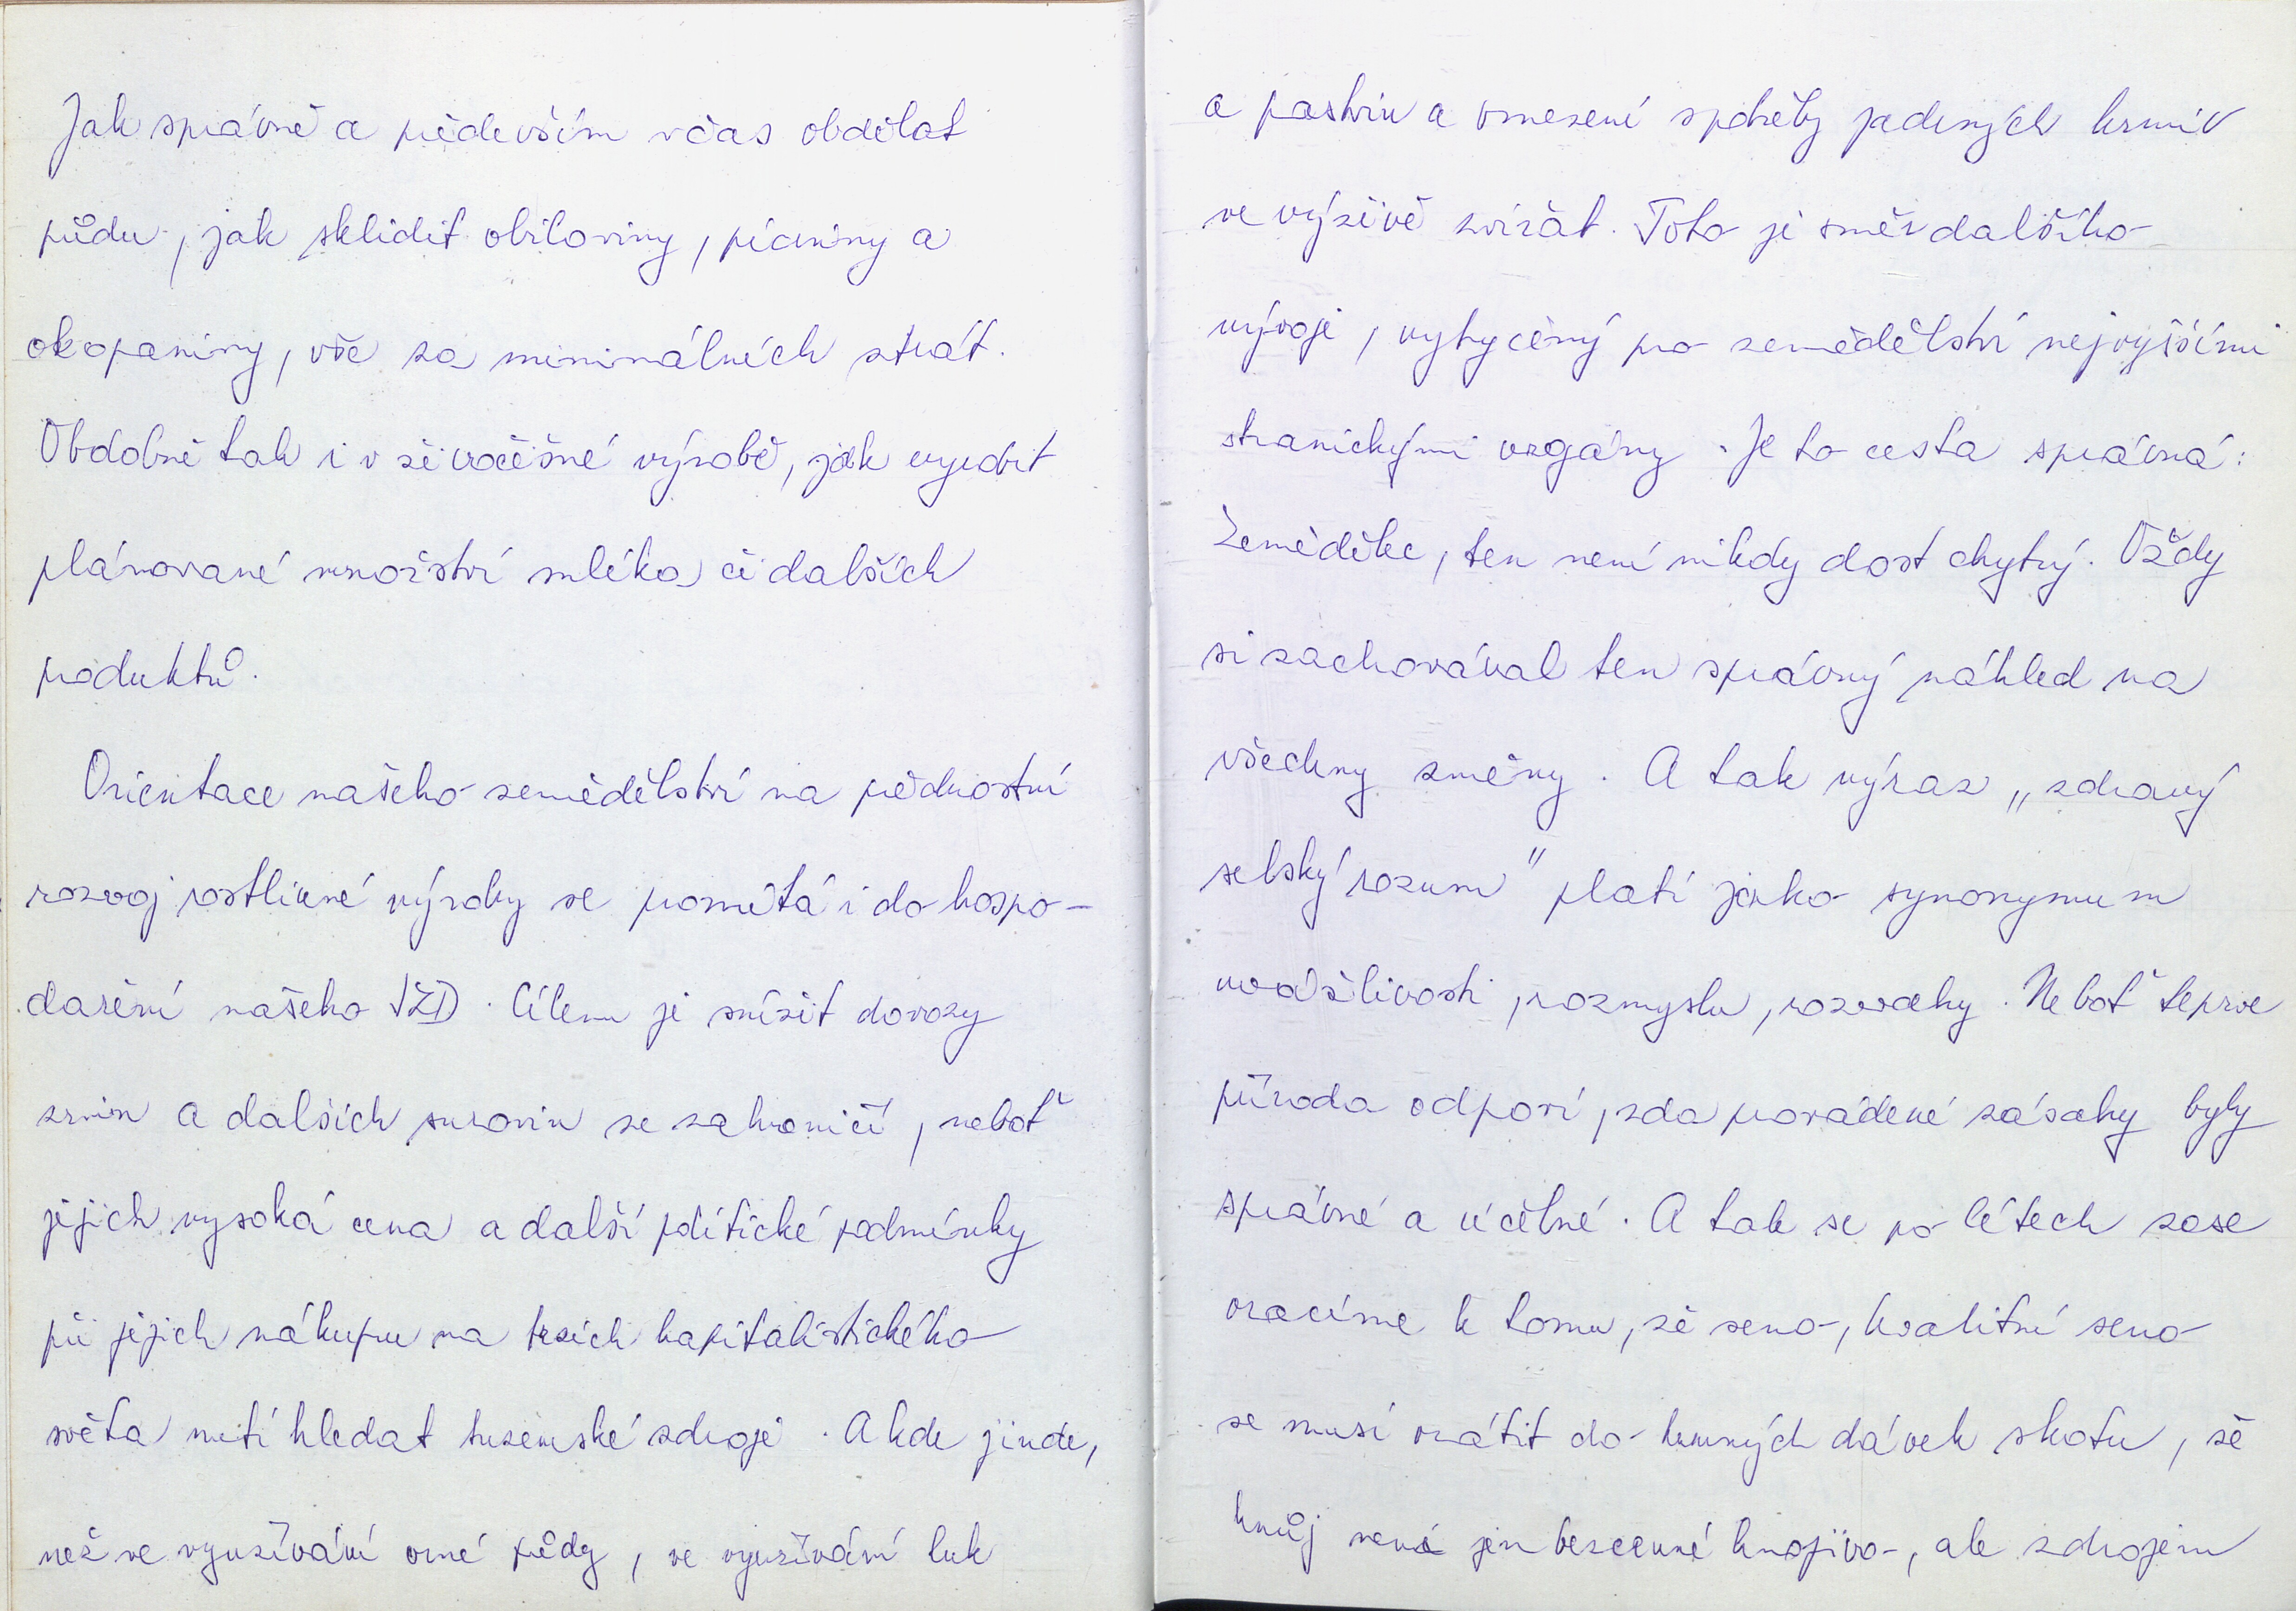 Jak správně a především včas obdělat
půdu, jak sklidit obiloviny, pícniny a
okopaniny, vše za minimálních ztrát.
Obdobně tak i v živočišné výrobě, jak vyrobit
plánované množství mléka či dalších
produktů.
Orientace našeho zemědělství na přednostní
rozvoj rostlinné výroby se promítá i do hospo-
daření našeho JZD. Cílem je snížit dovozy
zrnin a dalších surovin ze zahraničí, neboť
jejich vysoká cena a další politické podmínky
při jejich nákupu na trzích kapitalistického
světa nutí hledat tuzemské zdroje. A kde jinde,
než ve využívání orné půdy, ve využívání luk
a pastvin a omezení spotřeby jaderných krmiv
ve výživě zvířat. Toto je směr dalšího
vývoje, vytyčený pro zemědělství nejvyššími
stranickými orgány. Je to cesta správná:
Zemědělec, ten není nikdy dost chytrý. Vždy
si zachovával ten správný náhled na
všechny změny. A tak výraz „zdravý
selský rozum" platí jako synonymum
uvážlivosti, rozmyslu, rozvahy. Neboť teprve
příroda odpoví, zda prováděné zásahy byly
správné a účelné. A tak se po létech zase
vracíme k tomu, že seno, kvalitní seno
se musí vrátit do krmných dávek skotu, že
hnůj není jen bezcenné hnojivo, ale zdrojem